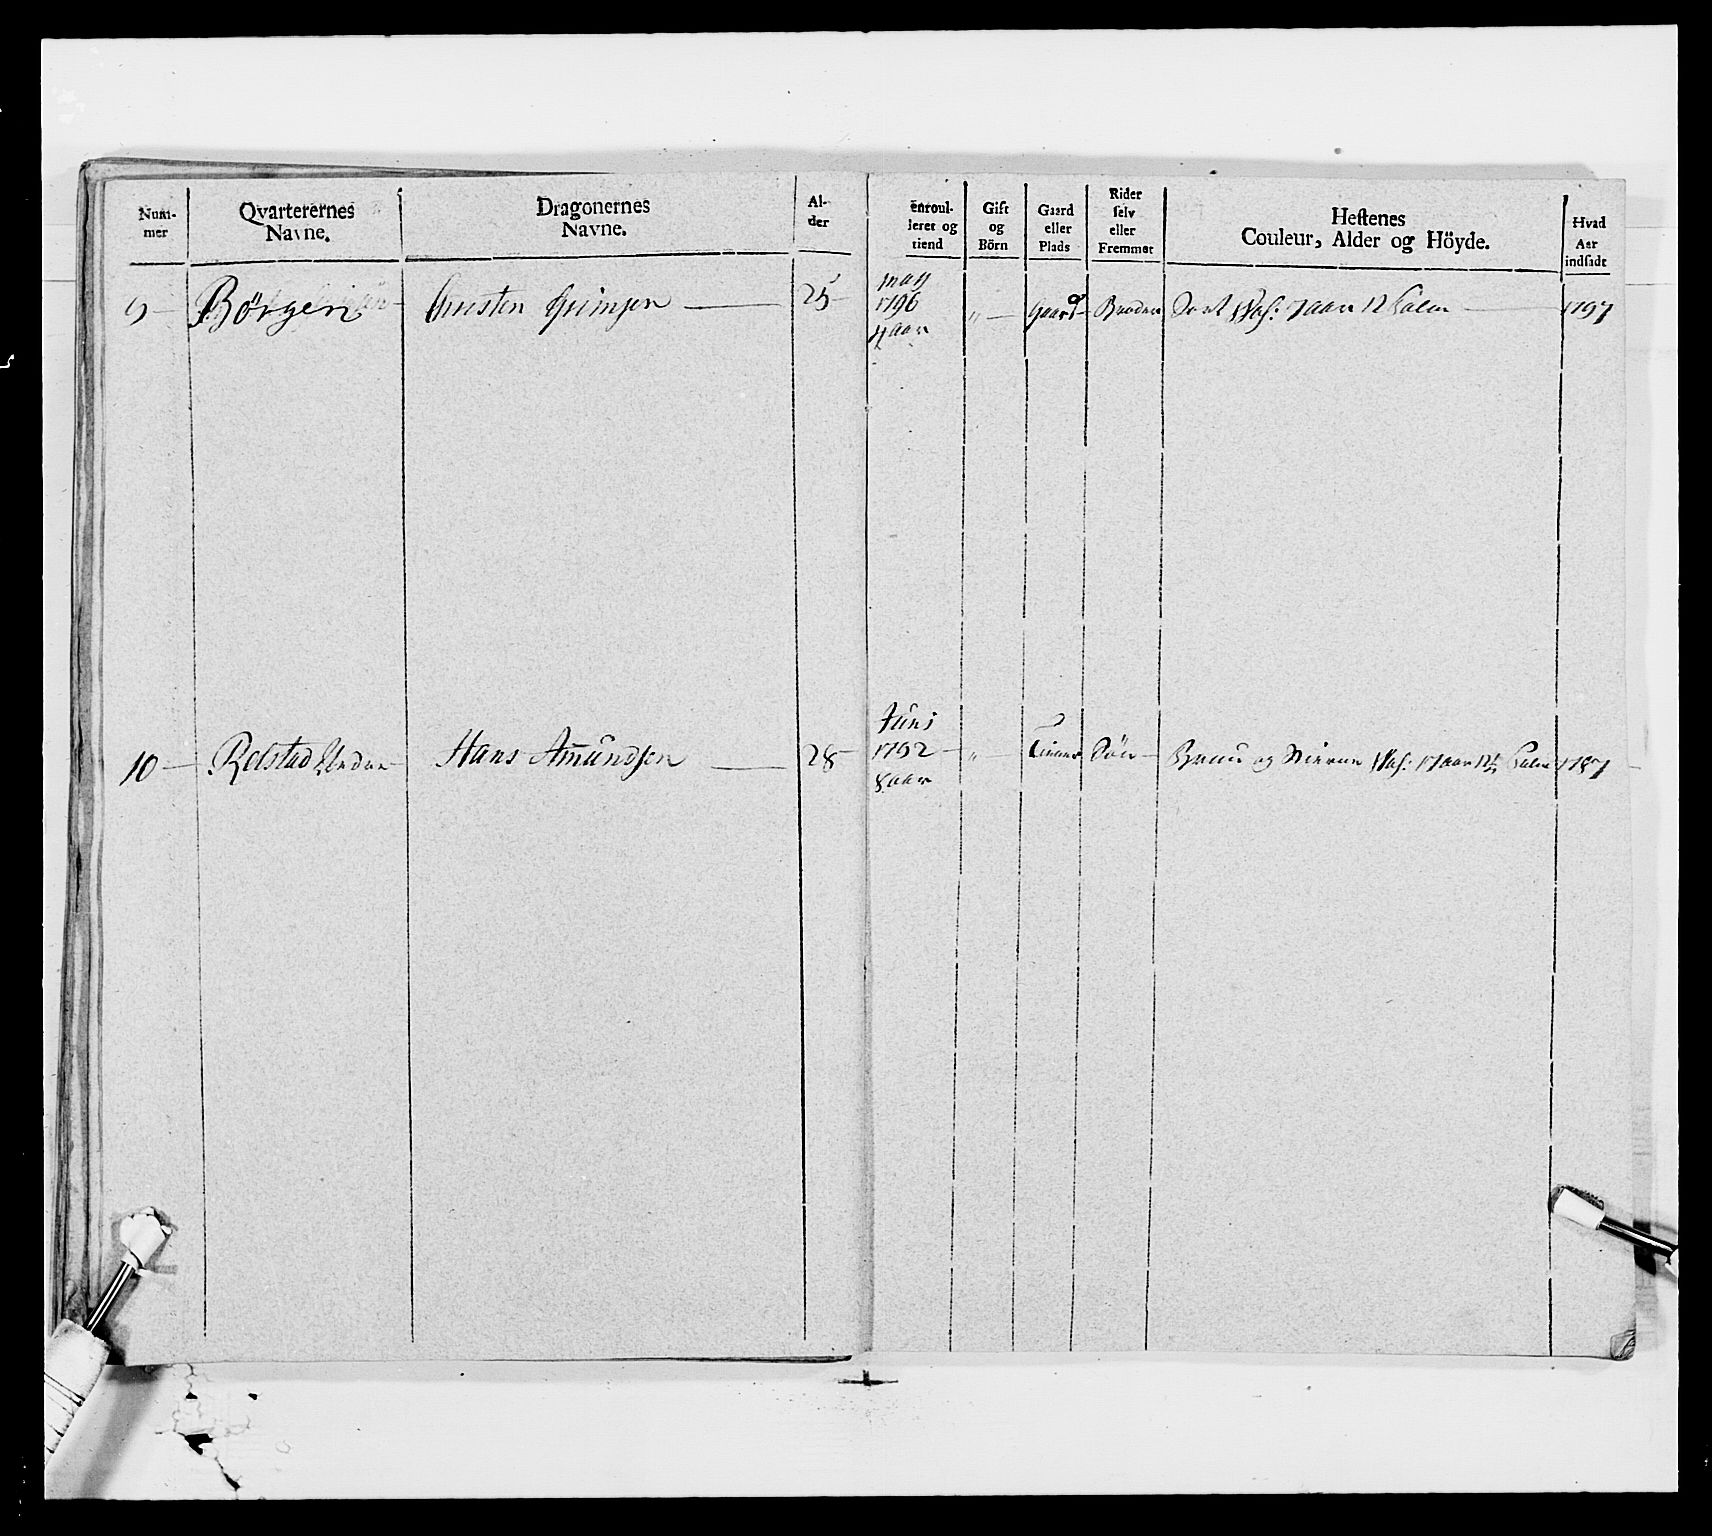 Num-
mer
Qvarterernes
Navne.
Dragonernes
Navne.
Al-
der
enroul-
leret og
tiend
Gift
og
Börn
Gaard
eller
Plads
Rider
selv
eller
Fremmet
Hestenes
Couleur, Alder og Höyde.
Hvad
Aar
indsadt
9 Börgen 25 Maij
1796
4 aar
„ Gaard Broder Sort 7 aar 12 1797
10 Relstad Nedre Hans Amundsen 28 Juni
1792
8 aar
„ Sön Bruun og 17 aar 12½ 1787